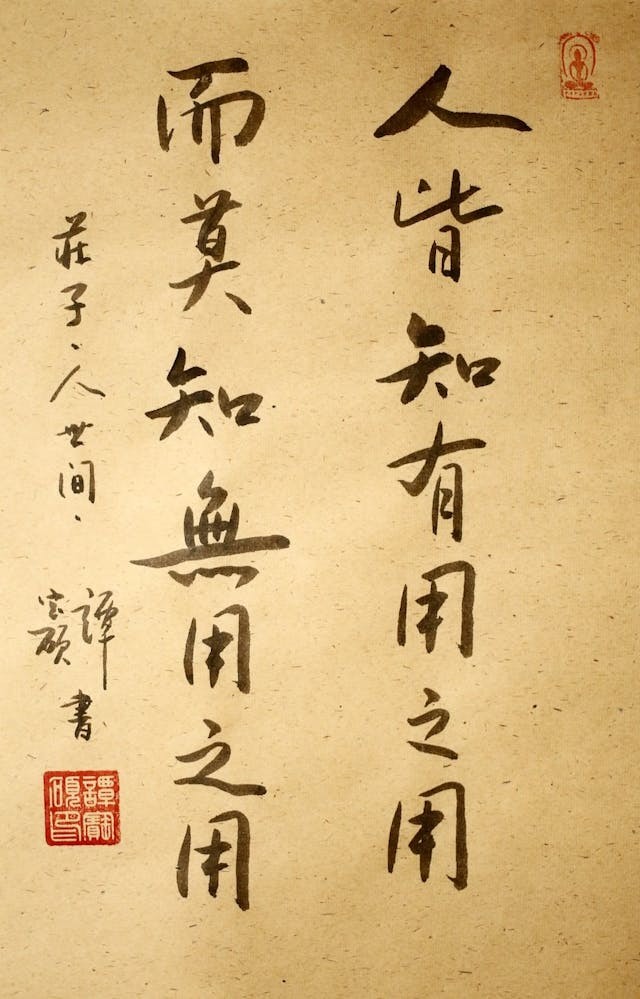 人皆知有用之用
而莫知無用之用
莊子、人世间、
譚宝碩書
譚寶
碩印